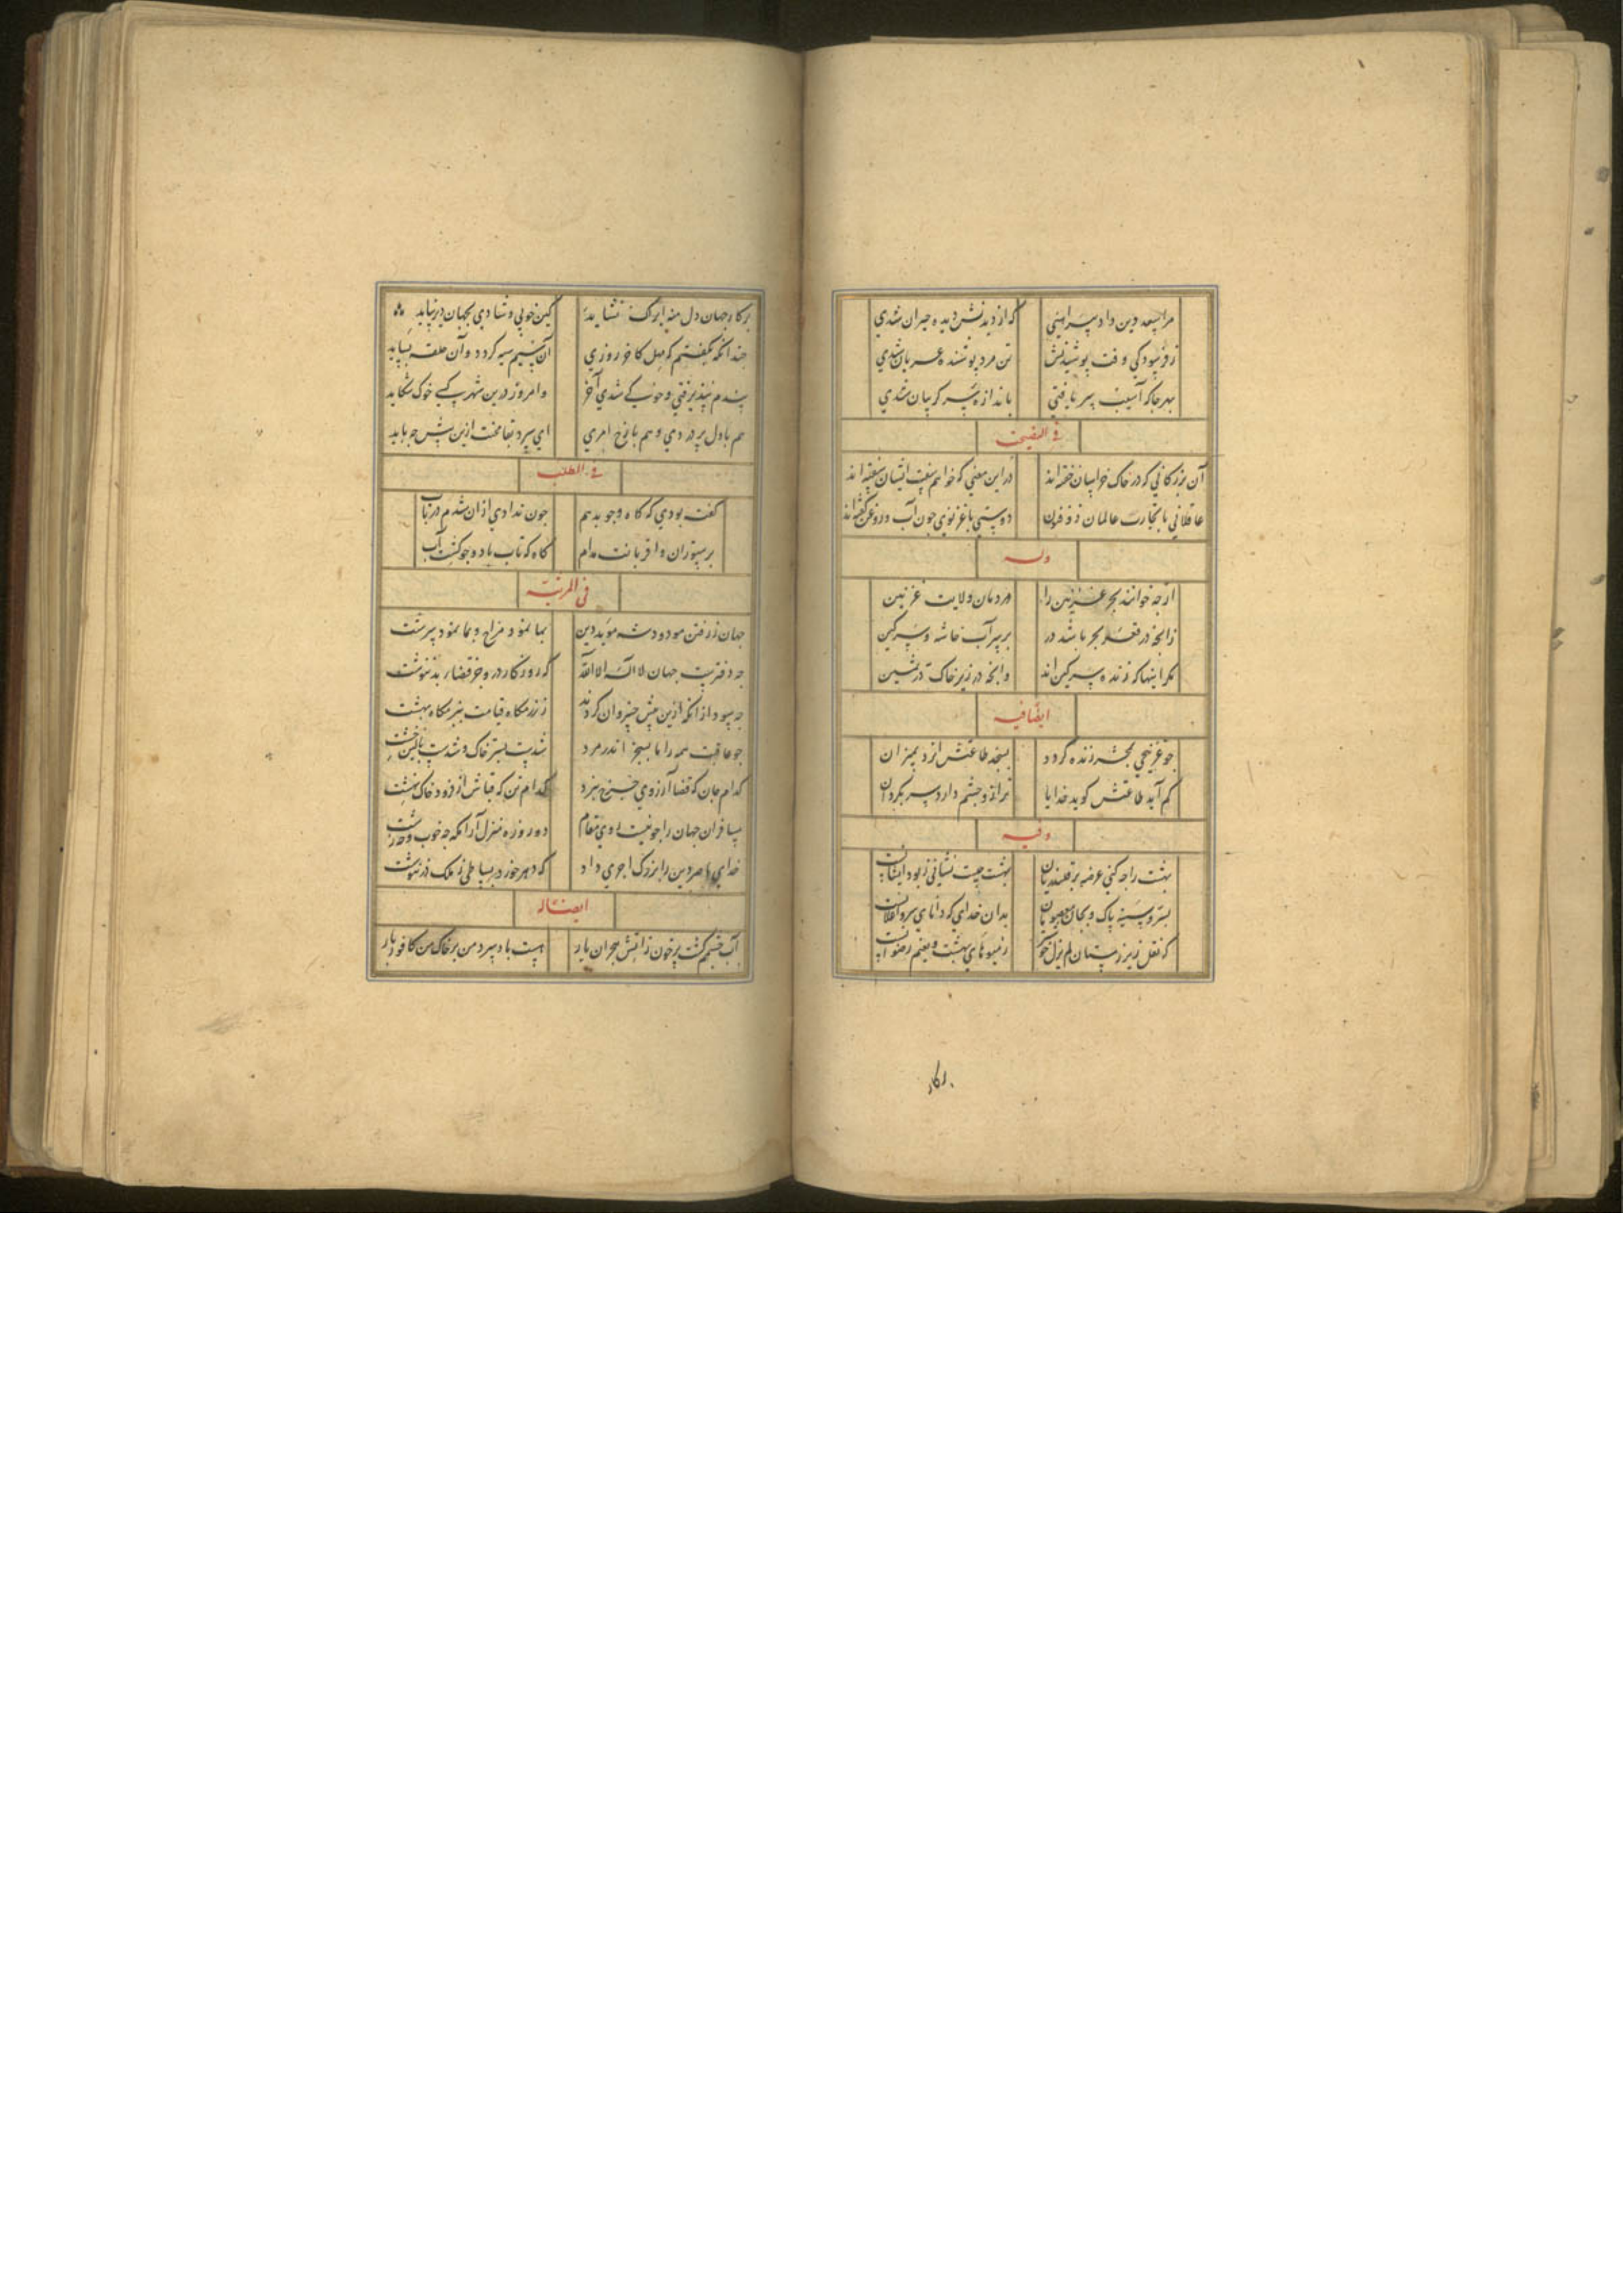 مرا سعد دین داد پیراهنی که از دیدنش دیده حیران شدی
ز فرسودگی وقت پوشیدنش تن مرد پوشنده عریان شدی
بهر جا که آسیب سر یافتی باندازه سر گریبان شدی
فی النصیحت
آن بزرگانی که در خاک خراسان خفته اند در این معنی که خواهم گفت ایشان گفته اند
عاقلانی با تجارت عالمان ذو فنون دوستی با غزنوی چون آب و روغن گفته اند
وله
از چه خوانند بحر غزنین را مردمان ولایت غزنین
زانچه در قعر بحر باشد در بر سر آب خاشه و سرگین
مگر اینها که زنده سرگین اند وانچه در زیر خاک در ثمین
ایضا فیه
چو غزنیچی بمحشر زنده گردد بسنجد طاعتش ایزد بمیزان
کم آید طاعتش گوید خدایا ترازو چشم دارد سر بگردان
وفیه
بهشت را چه کنی عرضه بر قلندریان بهشت چیست نشانی ز بود ایشانست
بسر و سینه پاک و بجان معصومان بدان خدای که دانای سر و اعلانست
که نعل زیر ز مستان لم یزل خوشتر ز میوهای بهشت و نعیم رضوانست
رکار
بر کار جهان دل منه ایرا که نشاید کین خوبی و شادی بجهان دیر نپاید
چندانکه بگفتم که مهل کاخر روزی آن سیم سیه گردد و آن حلقه بساید
پندم نپذیرفتی و خوگی شدی آخر و امروز درین شهر کسی خوک نگاید
هم با دل پر دردی و هم با رخ امری ای سرد بغا سخت ازین پس چه باید
فی الطلب
گفته بودی که کاه و جو بدهم چون ندادی از ان شدم در تاب
بر ستوران و اقربات مدام کاه کهتاب باد و جو کشکاب
فی المرثیه
جهان ز رفتن مودود شه موید دین بما نمود مزاج و بما نمود سرشت
چه دفتریست جهان لا اله الا الله که روزگار درو جز قضای بد ننوشت
چه سود ازانکه ازین پیش خسروان کردند ز رزمگاه قیامت بزمگاه بهشت
چو عاقبت همه را تا بسنجر اندر مرو شدست بستر خاک و شدست بالین خشت
کدام جان که قضا آرزوی چرخ نبرد کدام تن که قباش از درود خاک نهشت
مسافران جهان را چو نیست روی مقام دو روزه منزل آرامگه چه خوب و چه زشت
خدای ناصر دین را بزرگ اجری داد که دهر خود در بساطی ز ملک در ننوشت
ایضا له
آب چشمم گشت پر خون ز آتش هجران یار هست باد سرد من بر خاک من کافور بار